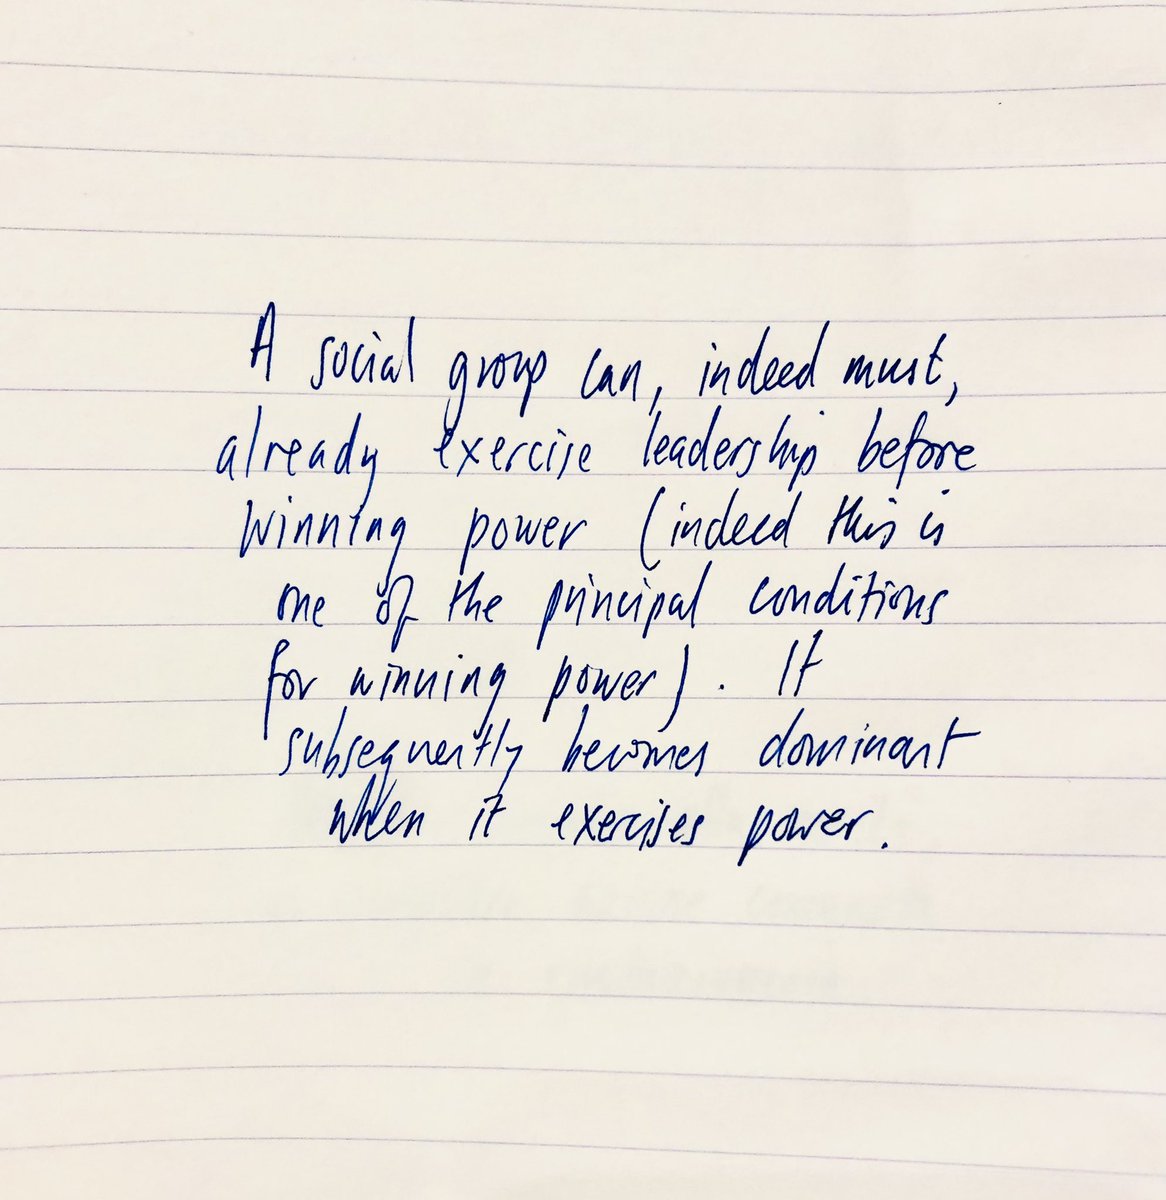 A social group can, indeed must,
already exercise leadership before
winning power (indeed this is
one of the principal conditions
for winning power). It
subsequently becomes dominant
when it exercises power.